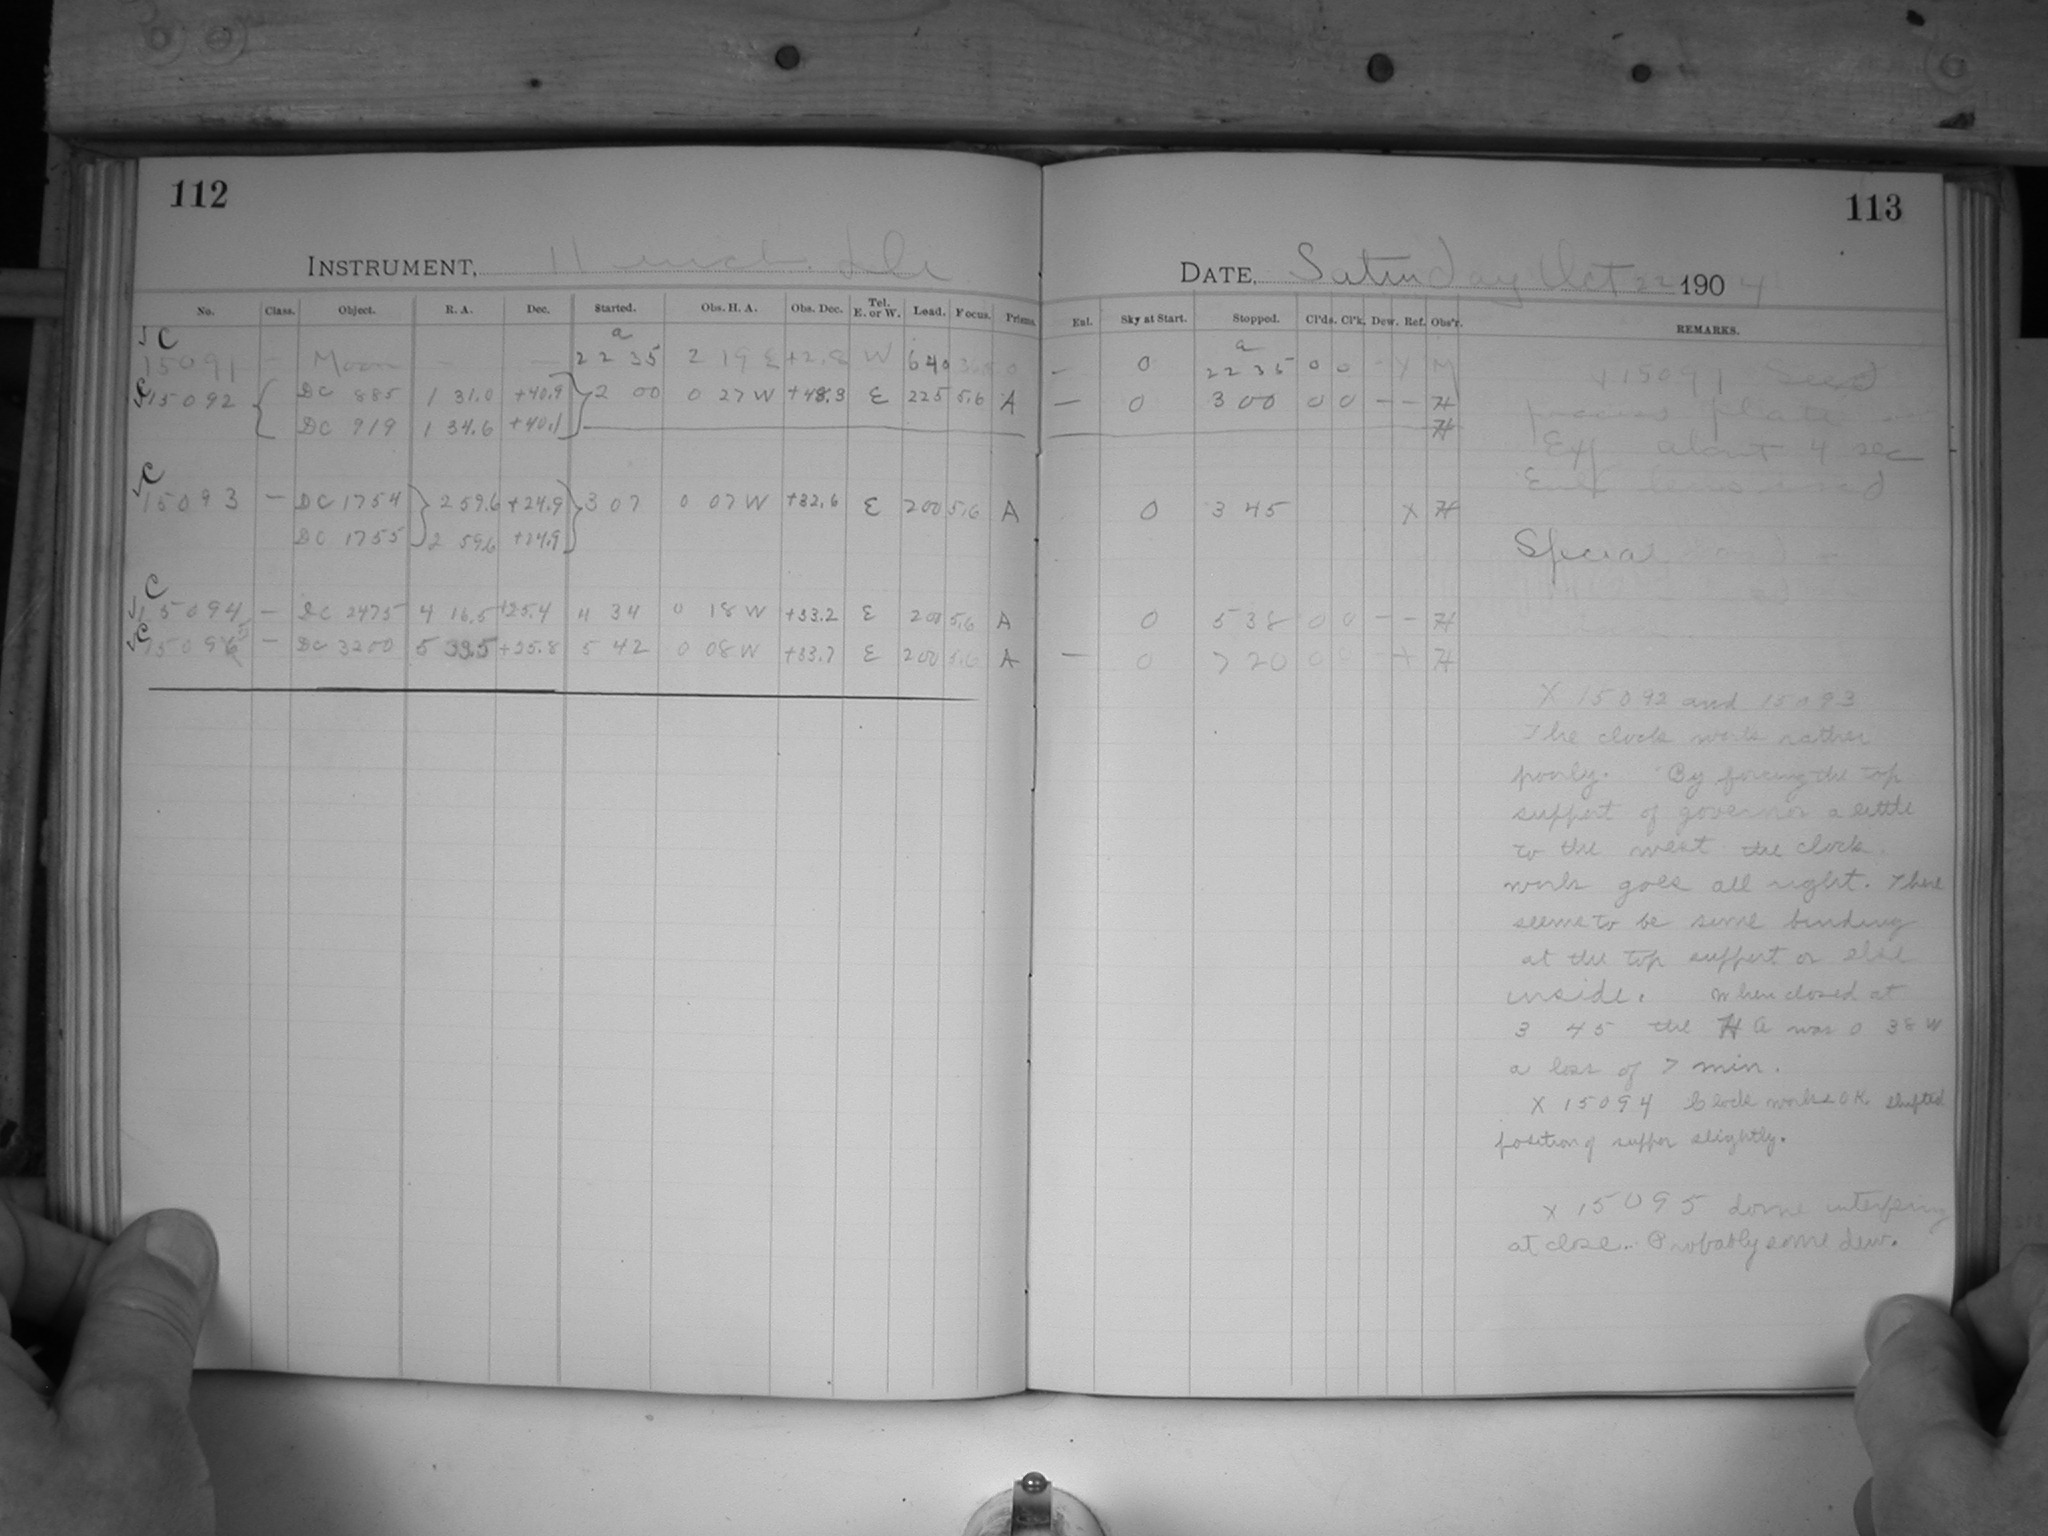 112
113
INSTRUMENT, 11 inch
DATE, Saturday Oct 22 1904
No. Class. Object. R. A. Dec. Started. Obs. H. A. Obs. Dec. Tel. E. or W. Load. Focus. Prisms.
Enl. Sky at Start. Stopped. Cl'ds. Cl'k. Dew. Ref. Obs'r. REMARKS.
C a a
15091 - Moon - - 22 35 2 19 E +2.8 W 640 0 - 0 22 35 0 0 - X M
C 15092 { DC 885 1 31.0 +40.9 } 2 00 0 27 W +48.3 E 225 5.6 A - 0 3 00 0 0 - - H
DC 919 1 34.6 +40.1 H
C
15093 - DC 1754 } 2 59.6 +24.9 } 3 07 0 07 W +32.6 E 200 5.6 A 0 3 45 X H
DC 1755 2 59.6 +24.9
C
15094 - DC 2475 4 16.5 +25.4 4 34 0 18 W +33.2 E 200 5.6 A 0 5 38 0 0 - - H
C 15095 - DC 3200 5 39.5 +25.8 5 42 0 08 W +33.7 E 200 5.6 A - 0 7 20 0 0 - X H
X 15091 Seed
process plate
Exp about 4 sec
Enl. lens used
Special
X 15092 and 15093
The clock work rather
poorly. By forcing the top
support of governor a little
to the west the clock
work goes all right. There
seems to be some binding
at the top support or else
inside. When closed at
3 45 the HA was 0 38 W
a loss of 7 min.
X 15094 Clock works OK. shifted
position of suppor slightly.
X 15095 dome interfering
at close. Probably some dew.